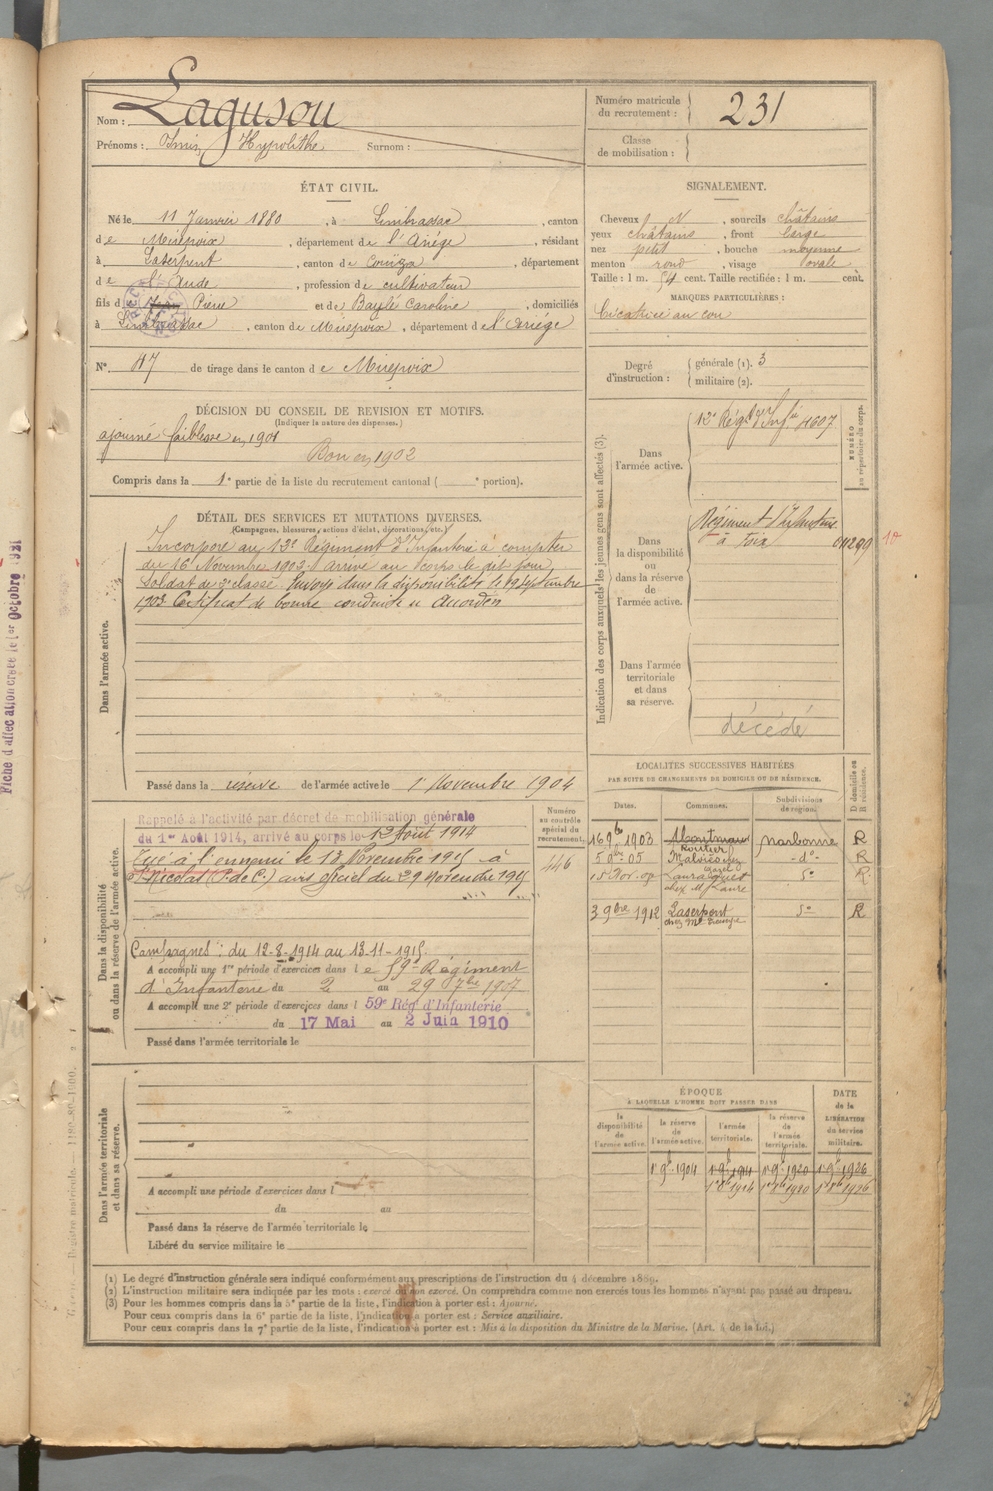 Nom : Lagusou
Prénoms : Hypolithe Surnom :
Numéro matricule du recrutement : 231
Classe de mobilisation :
ÉTAT CIVIL.
Né le 11 Janvier 1880, à Limbrassac, canton
de Mirepoix, département de l'Ariége, résidant
à Laserpent, canton de Couiza, département
de l'Aude, profession de cultivateur
fils de Jean Pierre et de Baylé Caroline, domiciliés
à Limbrassac, canton de Mirepoix, département de l'Ariége
N° 47 de tirage dans le canton de Mirepoix
DÉCISION DU CONSEIL DE REVISION ET MOTIFS.
(Indiquer la nature des dispenses.)
ajourné faiblesse en 1901
Bon en 1902
Compris dans la 1e partie de la liste du recrutement cantonal ( e portion).
SIGNALEMENT.
Cheveux N, sourcils châtains
yeux châtains, front large
nez petit, bouche moyenne
menton rond, visage ovale
Taille : 1 m. 54 cent. Taille rectifiée : 1 m. cent.
MARQUES PARTICULIÈRES :
Cicatrice au cou
Degré d'instruction : générale (1). 3
militaire (2).
DÉTAIL DES SERVICES ET MUTATIONS DIVERSES.
(Campagnes, blessures, actions d'éclat, décorations, etc.)
Dans l'armée active.
Incorporé au 13e Régiment d'Infanterie à compter
du 16 Novembre 1902. arrivé au corps le dit jour
soldat de 2e classe. Envoyé dans la disponibilité le 19 septembre
1903 Certificat de bonne conduite accordé
Passé dans la réserve de l'armée active le 1 Novembre 1904
Indication des corps auxquels les jeunes gens sont affectés (3).
NUMÉRO au répertoire du corps.
Dans l'armée active.
Régt d'Infie 4607
Dans la disponibilité ou dans la réserve de l'armée active.
Régiment d'Infanterie
à Foix 04299
Dans l'armée territoriale et dans sa réserve.
décédé
Dans la disponibilité ou dans la réserve de l'armée active.
Rappelé à l'activité par décret de mobilisation générale
du 1er Août 1914, arrivé au corps le 12 Août 1914
Tué à l'ennemi le 13 Novembre 1915 à
St Nicolas (P. de C.) avis officiel du 29 Novembre 1915
Campagnes : du 12-8-1914 au 13-11-1915.
A accompli une 1re période d'exercices dans le 59e Régiment
d'Infanterie du 2 au 29 7bre 1907
A accompli une 2e période d'exercices dans l 59e Rég. d'Infanterie
du 17 Mai au 2 Juin 1910
Passé dans l'armée territoriale le
Numéro au contrôle spécial du recrutement.
446
LOCALITÉS SUCCESSIVES HABITÉES
PAR SUITE DE CHANGEMENTS DE DOMICILE OU DE RÉSIDENCE.
Dates. Communes. Subdivisions de région. D domicile ou R résidence.
16 9bre 1903 Routier Narbonne R
5 9bre 05 -do- R
R
3 9bre 1912 Laserpent do R
ÉPOQUE
À LAQUELLE L'HOMME DOIT PASSER DANS
la disponibilité de l'armée active.
la réserve de l'armée active.
l'armée territoriale.
la réserve de l'armée territoriale.
DATE de la LIBÉRATION du service militaire.
1er 9b 1904 1er 9b 1914 1er 9b 1920 1er 9b 1926
1er 8b 1914 1er 8b 1920 1er 8b 1926
Dans l'armée territoriale et dans sa réserve.
A accompli une période d'exercices dans l
du au
Passé dans la réserve de l'armée territoriale le
Libéré du service militaire le
(1) Le degré d'instruction générale sera indiqué conformément aux prescriptions de l'instruction du 4 décembre 1889.
(2) L'instruction militaire sera indiquée par les mots : exercé ou non exercé. On comprendra comme non exercés tous les hommes n'ayant pas passé au drapeau.
(3) Pour les hommes compris dans la 5e partie de la liste, l'indication à porter est : Ajourné.
Pour ceux compris dans la 6e partie de la liste, l'indication à porter est : Service auxiliaire.
Pour ceux compris dans la 7e partie de la liste, l'indication à porter est : Mis à la disposition du Ministre de la Marine. (Art. 4 de la loi.)